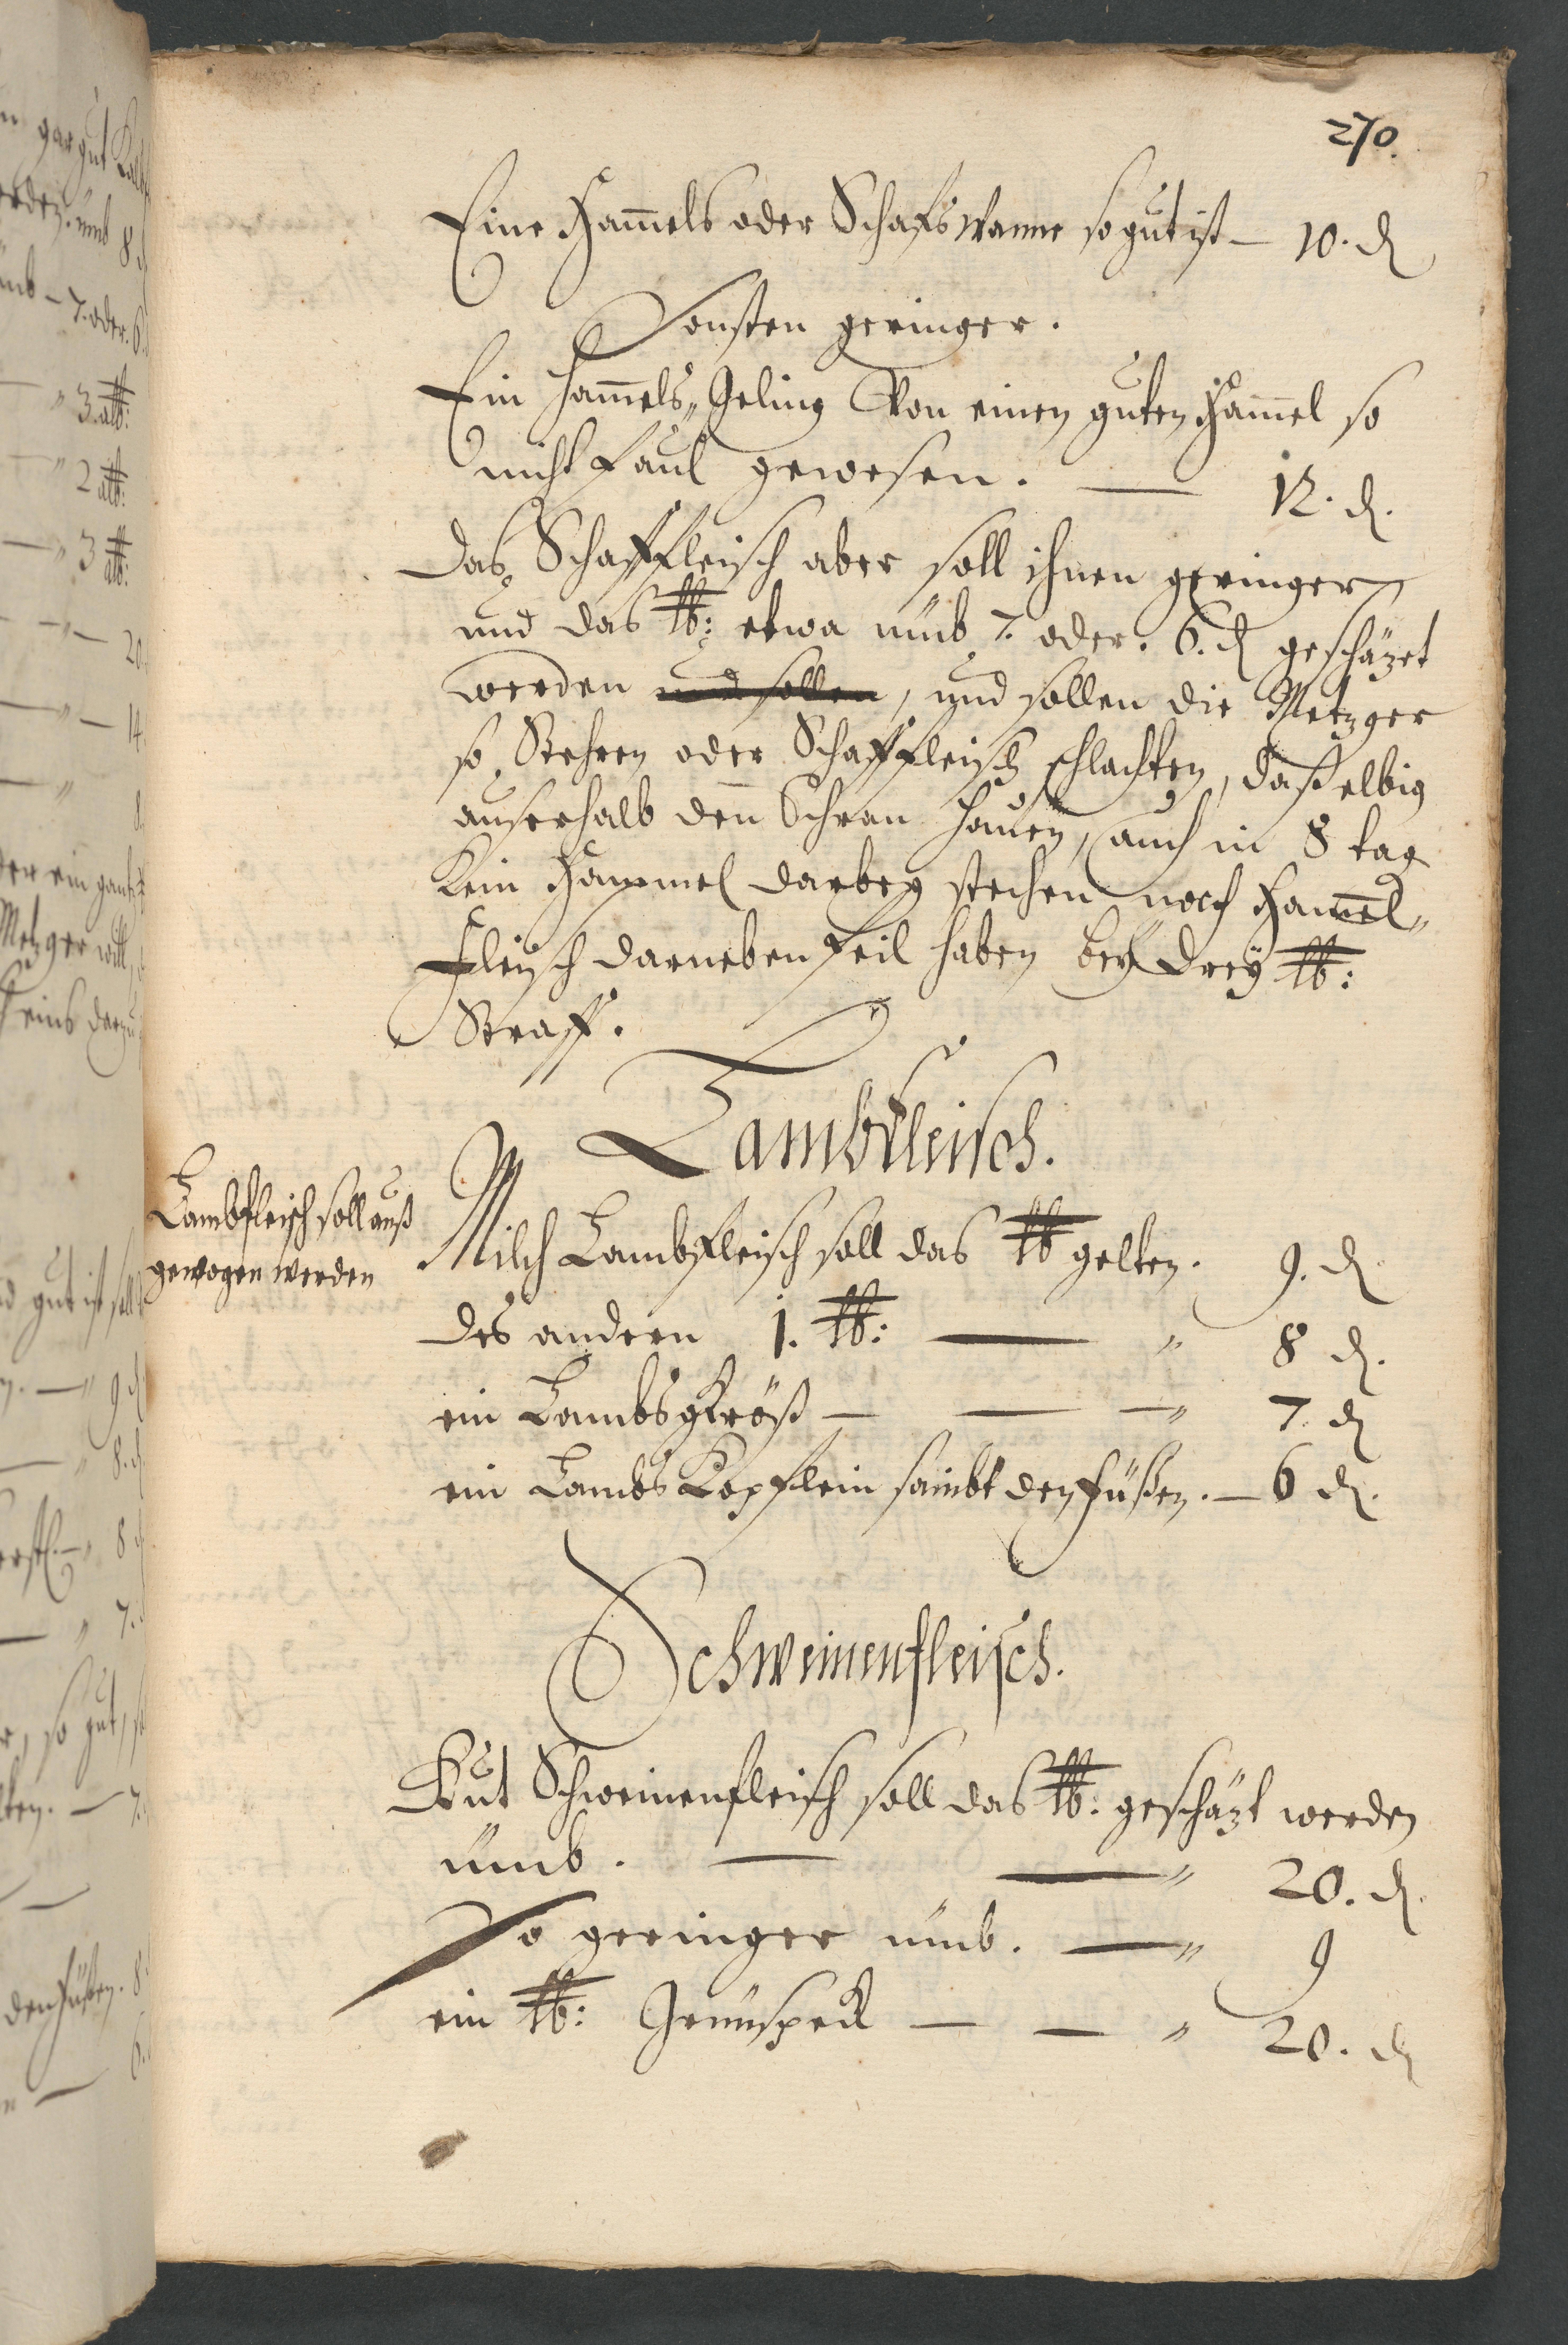 270.
Eine Ham̅els oder Schafs Wanne so gut ist — 10. ₰
Sonsten geringer.
Ein Ham̅els„ Geling Von einen guten Ham̅el so
nicht faul gewesen. — 12. ₰.
Das Schaffleisch aber soll ihnen geringer
und das ℔: etwa umb 7. oder. 6. ₰ geschäzet
werden und sollen, und sollen die Metzger
so Stehren oder Schaffleisch schlachten, daßelbig
auserhalb den̅ Schran hauen, auch in 8 tag
Kein Hammel darbey stechen noch Ham̅el„
Fleisch darneben feil haben bey drey ℔:
Straff.
Lambfleisch.
Lambfleisch soll auß
gewogen werden
Milch Lambfleisch soll das ℔ gelten. 9. ₰
des andern 1. ℔: — „ 8 ₰.
ein Lambsgkröß — — — „ 7. ₰
ein Lambs Kopflein sambt den füßen. — 6 ₰.
Schweinenfleisch.
Gut Schweinenfleisch soll das ℔: geschäzt werden
umb. — — „ 20. ₰.
So geringer umb. — „ 9
ein ℔: Grunspeck — — „ 20. ₰